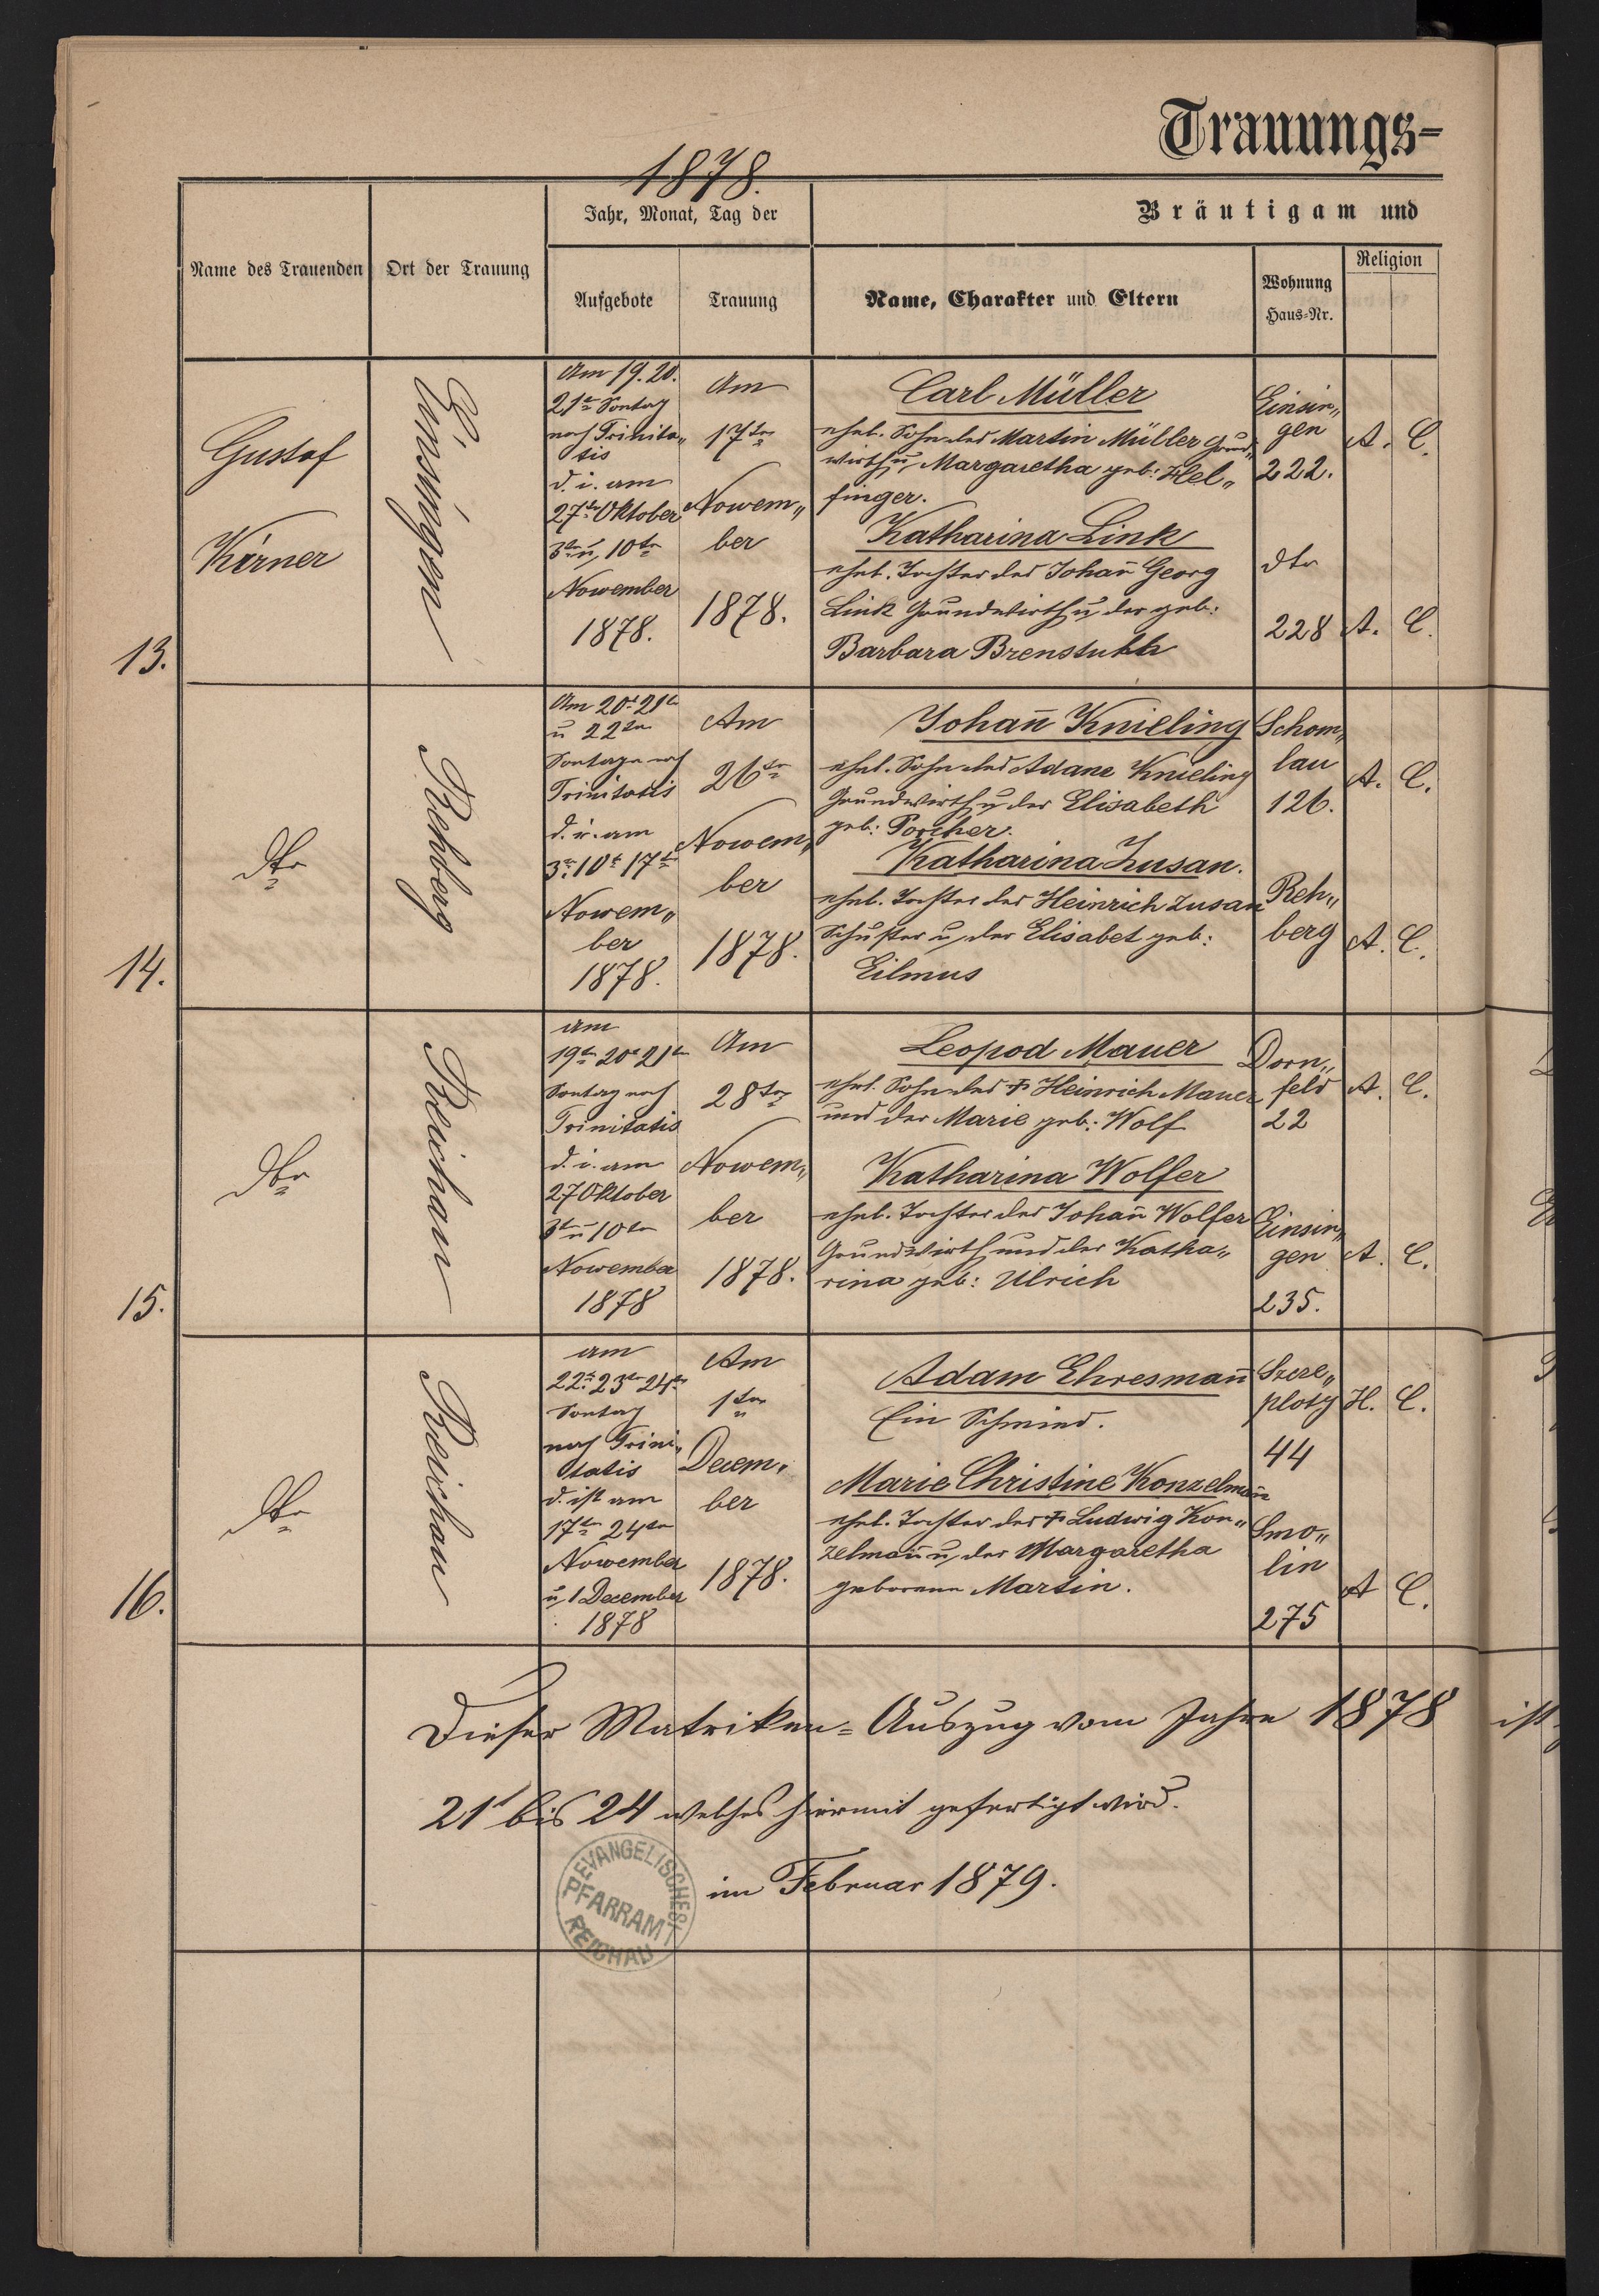 Trauungs-
1878.
Jahr, Monat, Tag der
Bräutigam und
Name des Trauenden
Ort der Trauung
Aufgebote
Trauung
Name, Charakter und Eltern
Wohnung
Haus-Nr.
Religion
13.
Gustaf
Kärner
Einsingen
Am 19. 20.
21te Sontag
nach Trinita„
tis
d. i. am
27ten Oktober
3ten u 10ten
Nowember
1878.
Am
17ten
Nowem„
ber
1878.
Carl Müller
ehel. Sohn des Martin Müller Grund„
wirth u Margaretha geb: Hel„
finger.
Einsin„
gen
222.
A. C.
Katharina Link
ehel. Tochter des Johañ Georg
Link Grundwirth u der geb:
Barbara Brenstuhh
dto
228
A. C.
14.
dto
Rehberg
Am 20t 21te
u 22ten
Sontage nach
Trinitatis
d. i. am
3t 10t 17te
Nowem„
ber
1878.
Am
26te
Nowem„
ber
1878.
Johañ Knieling
ehel. Sohn des Adam Knieling
Grundwirth u der Elisabeth
geb: Porcher.
Schom„
lau
126.
A. C.
Katharina Zusan.
ehel. Tochter des Heinrich Zusan
Schuster u der Elisabet geb:
Eilmus
Reh„
berg
A. C.
15.
dto
Reichau
am
19te 20t 21te
Sontag nach
Trinitatis
d. i. am
27 Oktober
3te u 10ten
Nowember
1878
Am
28ten
Nowem„
ber
1878.
Leopod Mauer
ehel. Sohn des † Heinrich Mauer
und der Marie geb: Wolf
Dorn„
feld
22
A. C.
Katharina Wolfer
ehel. Tochter des Johañ Wolfer
Grundwirth und der Katha„
rina geb: Ulrich
Einsin„
gen
235.
A. C.
16.
dto
Reichau
am
22t 23te 24te
Sontag
nach Trini„
tatis
d. ist am
17ten 24ten
Nowember
u 1 December
1878
Am
1ten
Decem„
ber
1878.
Adam Ehresmañ
Ein Schmied.
Szcze„
ploty
44
H. C.
Marie Christine Konzelmañ
ehel. Tochter des † Ludwig Kon„
zelmañ u der Margaretha
geborene Martin.
Smo„
lin
275
A C.
Dieser Matriken-Auszug vom Jahre 1878 ist
21 bis 24 welches hiermit gefertigt wird.
im Februar 1879.
EVANGELISCHES
PFARRAMT
REICHAU